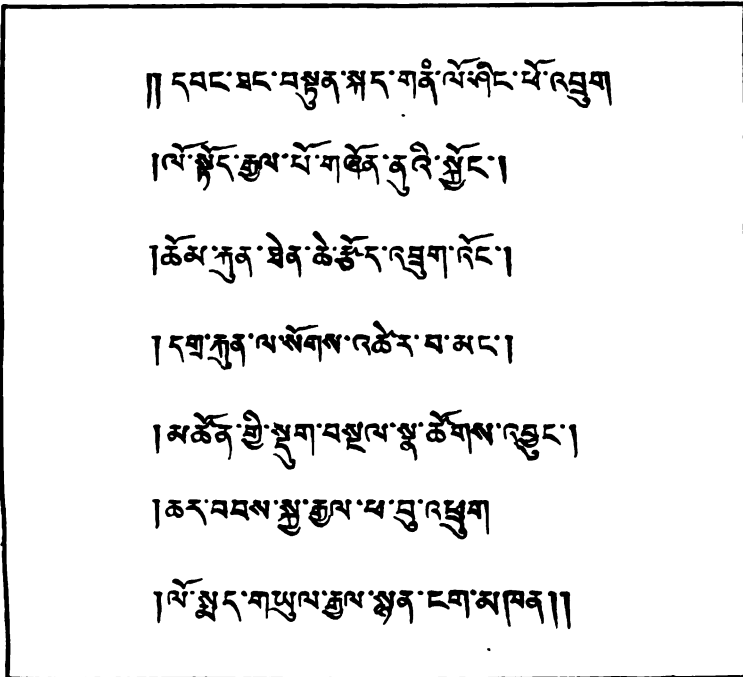 ༎དབང་ཐང་བསྟུན་སྐད་གནཾ་ལོ་ཤིང་ཕོ་འབྲུག
།ལོ་སྟོད་རྒྱལ་པོ་གཞོན་ནུའི་སྐྱོང་།
།ཆོམ་རྐུན་ཐེན་ཆེ་རྩོད་འཐུག་འོང་།
།དགྲ་རྐུན་ལ་སོགས་འཚེར་བ་མང་།
།མཚོན་གྱི་སྡུག་བསྔལ་སྣ་ཚོགས་འབྱུང་།
།ཆར་བབས་སྐྱ་རྒྱལ་ཕ་བུ་འཕྲུག
།ལོ་སྨད་གཡུལ་རྒྱལ་སྙན་ངག་མཁན།།